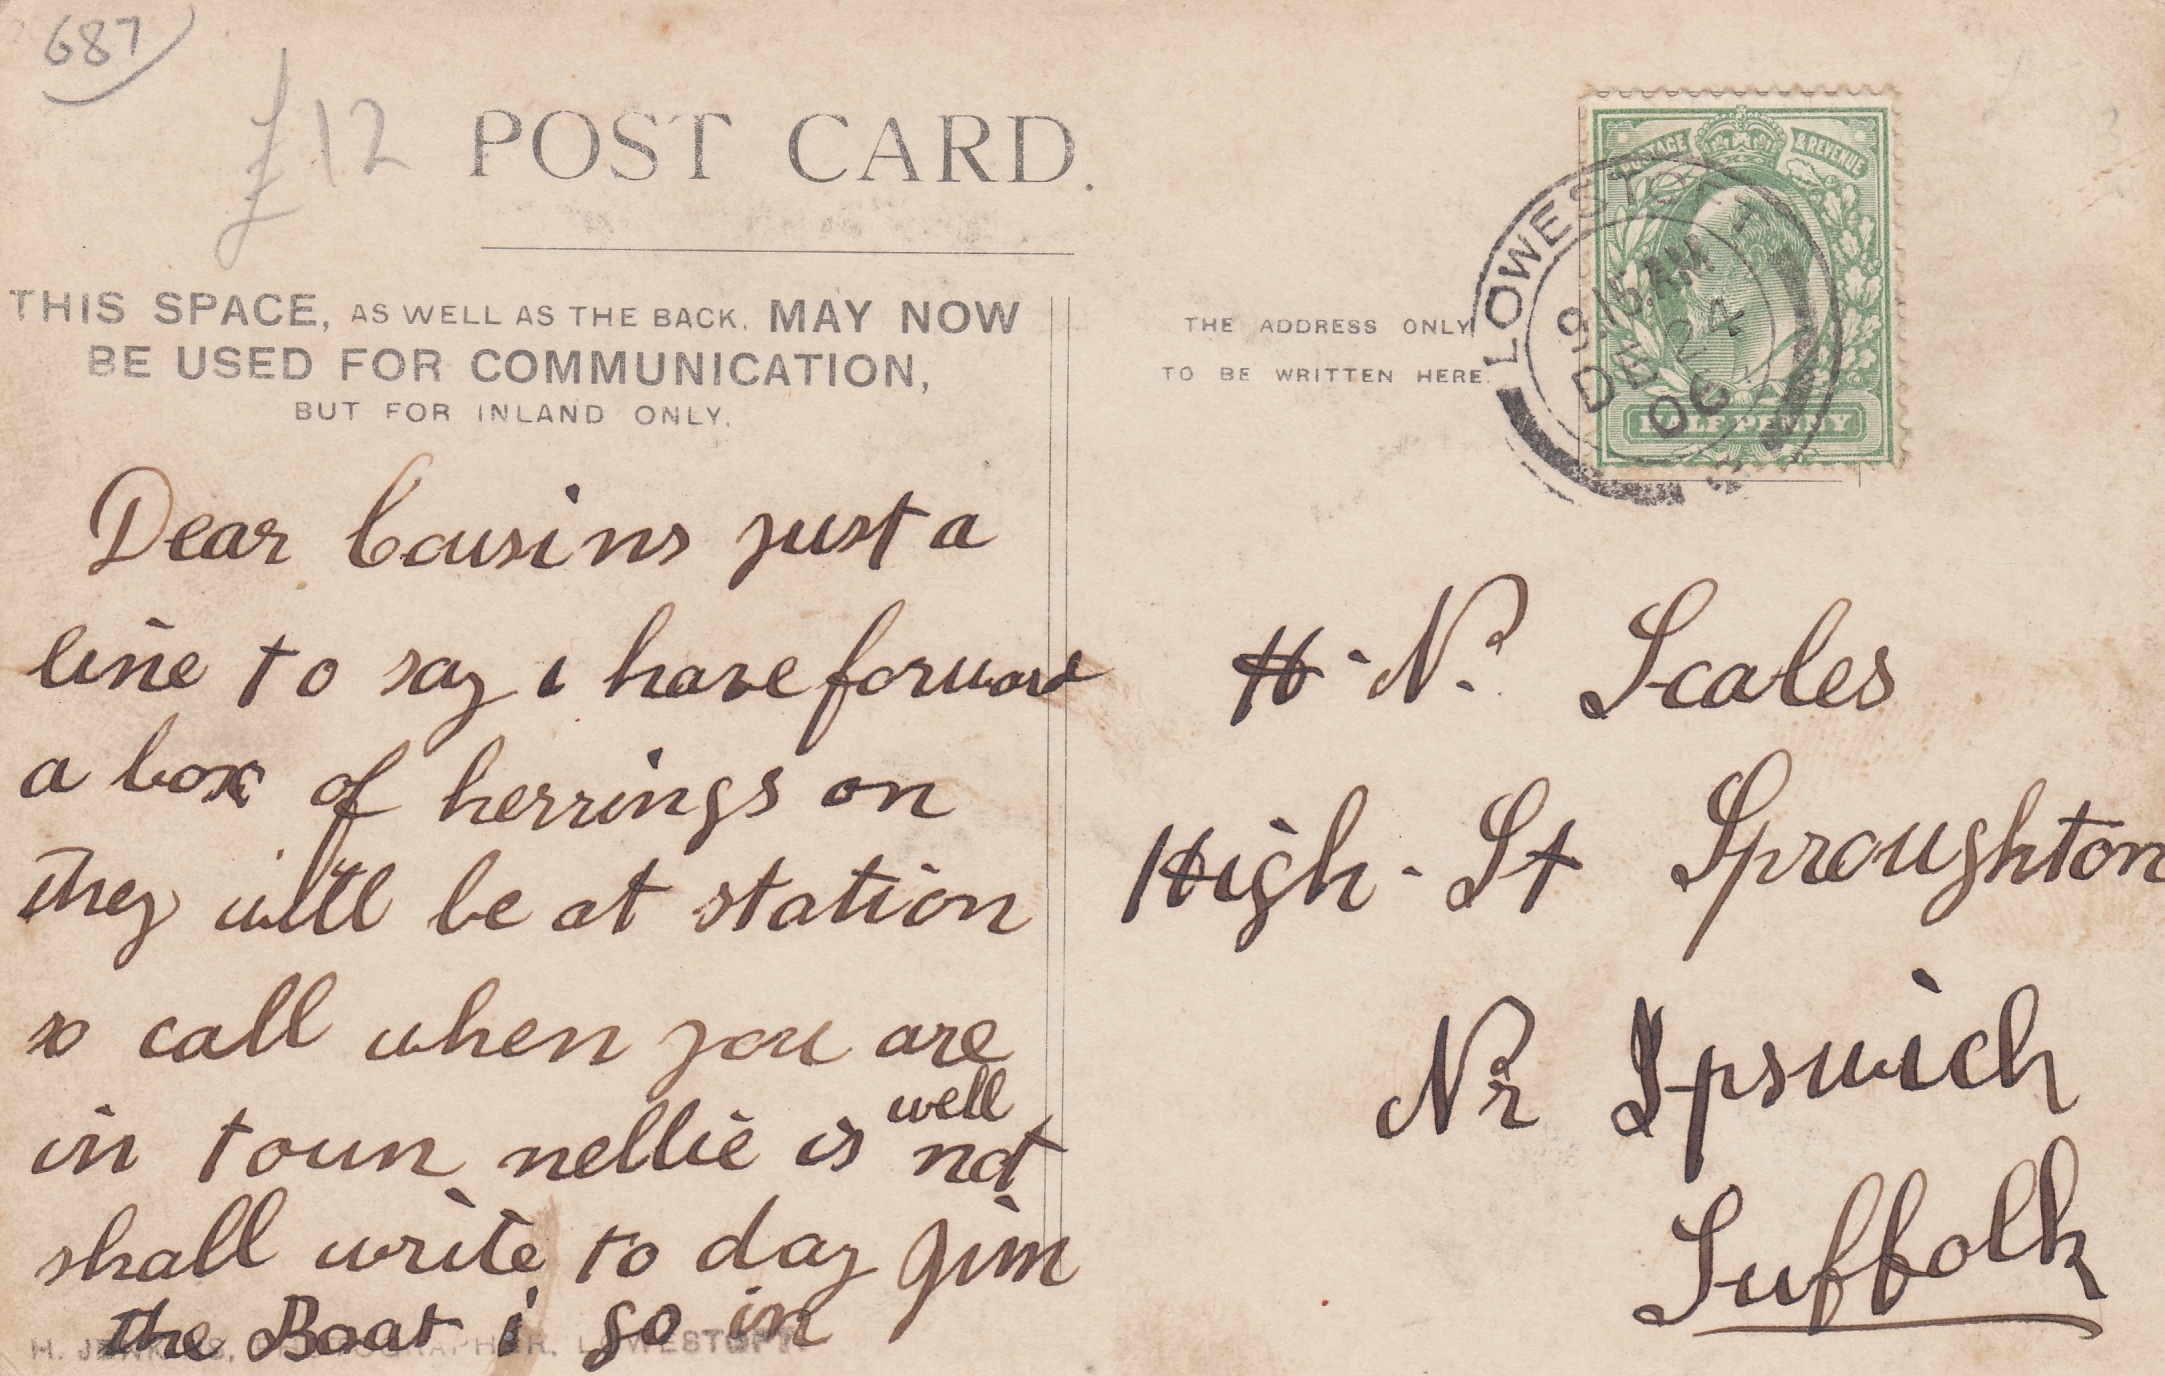 687
£12
POST CARD.
THIS SPACE, AS WELL AS THE BACK, MAY NOW
BE USED FOR COMMUNICATION,
BUT FOR INLAND ONLY.
THE ADDRESS ONLY
TO BE WRITTEN HERE.
POSTAGE & REVENUE
HALF PENNY
LOWESTOFT
9.15 AM
DE 24
06
Dear Cousins just a
line to say i have forward
a box of herrings on
they will be at station
so call when you are
in toun nellie is well
not
shall write to day Jim
the Boat i go in
H. JENKINS, PHOTOGRAPHER, LOWESTOFT.
H. N. Scales
High - St Sproughton
Nr Ipswich
Suffolk